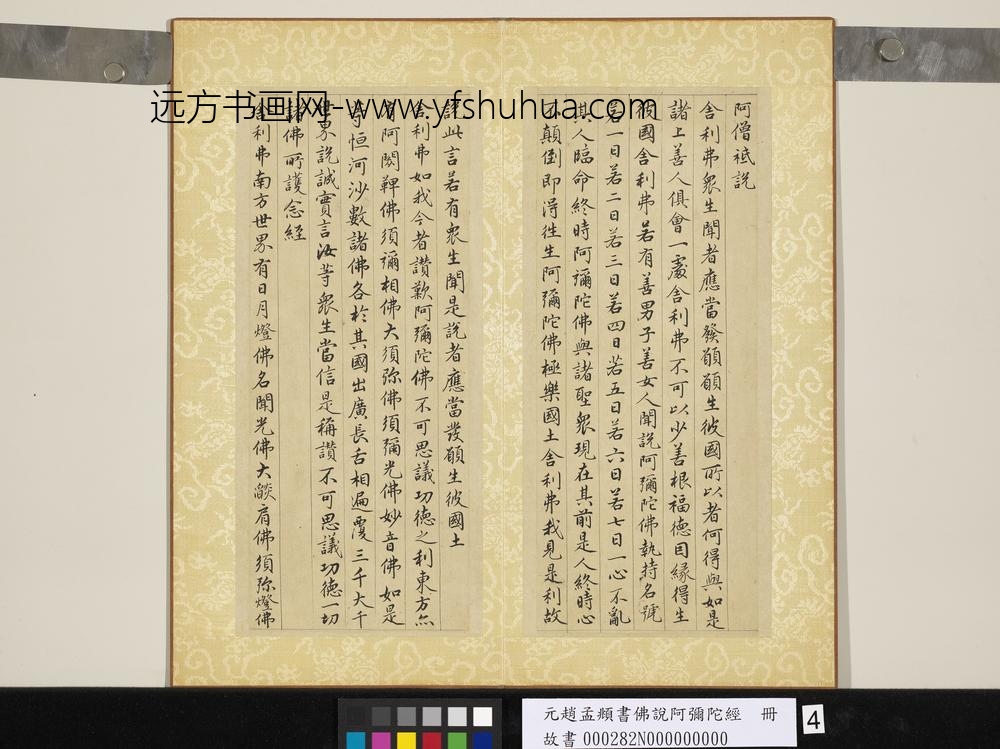 远方书画网-www.yfshuhua.com
阿僧祇説
舎利弗衆生聞者應當發願願生彼國所以者何得與如是
諸上善人俱會一處舎利弗不可以少善根福德因緣得生
彼國舎利弗若有善男子善女人聞說阿彌陀佛執持名號
若一日若二日若三日若四日若五日若六日若七日一心不亂
其人臨命終時阿彌陀佛與諸聖衆現在其前是人終時心
不顛倒即得往生阿彌陀佛極樂國土舎利弗我見是利故
說此言若有衆生聞是說者應當發願生彼國土
舎利弗如我今者讃歎阿彌陀佛不可思議功德之利東方亦
有阿閦鞞佛須彌相佛大須弥佛須彌光佛妙音佛如是
等恒河沙數諸佛各於其國出廣長舌相遍覆三千大千
世界說誠實言汝等衆生當信是稱讃不可思議功德一切
諸佛所護念經
舎利弗南方世界有日月燈佛名聞光佛大燄肩佛須弥燈佛
元趙孟頫書佛說阿彌陀經 冊
故書 000282N000000000
4